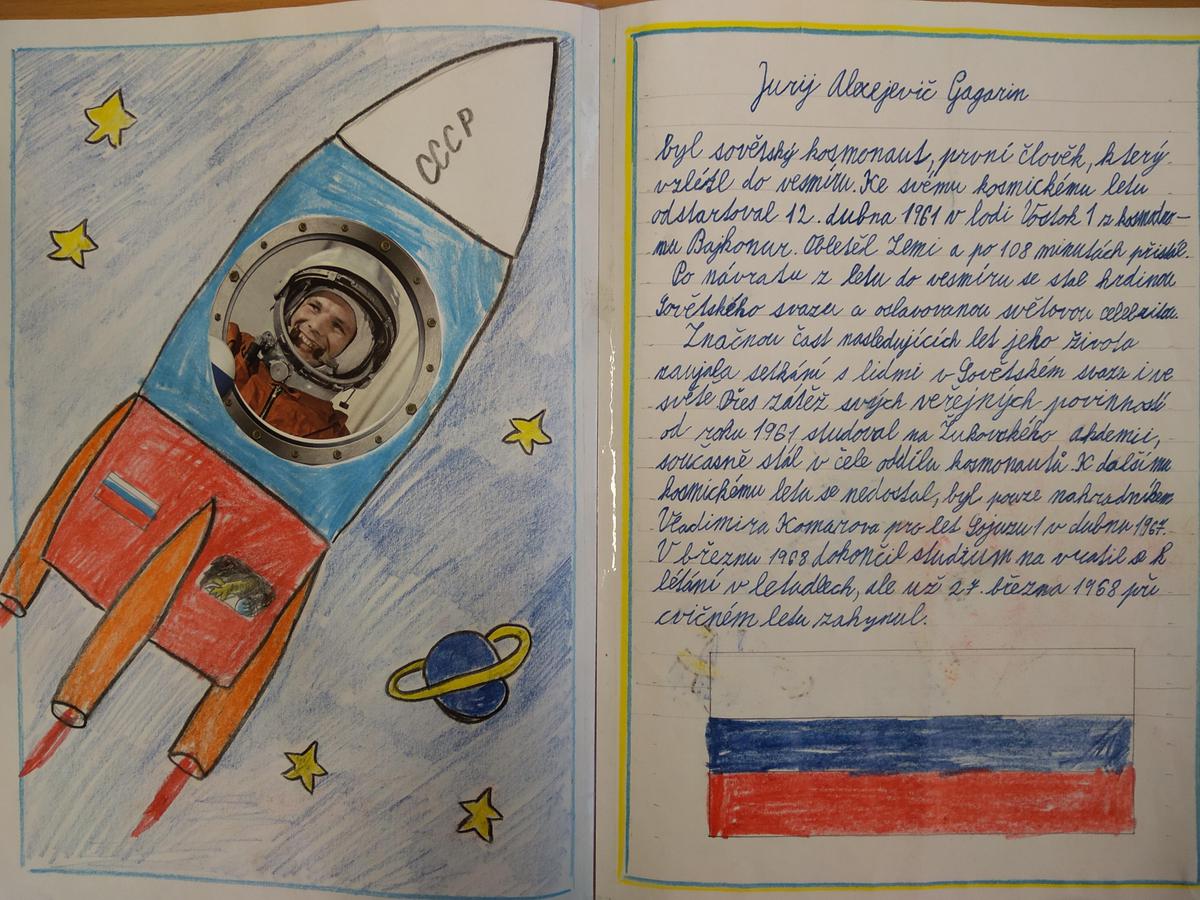 СССР
Jurij Alexejevič Gagarin
byl sovětský kosmonaut, první člověk, který
vzlétl do vesmíru. Ke svému kosmickému letu
odstartoval 12. dubna 1961 v lodi Vostok 1 z kosmodro-
mu Bajkonur. Obletěl Zemi a po 108 minutách přistál.
Po návratu z letu do vesmíru se stal hrdinou
Sovětského svazu a oslavovanou světovou celebritou.
Značnou část následujících let jeho života
zaujala setkání s lidmi v Sovětském svazu i ve
světě Přes zátěž svých veřejných povinností
od roku 1961 studoval na Žukovského akdemii,
současně stál v čele oddílu kosmonautů. K dalšímu
kosmickému letu se nedostal, byl pouze náhradníkem
Vladimira Komarova pro let Sojuzu 1 v dubnu 1967.
V březnu 1968 dokončil studium na vratil se k
létání v letadlech, ale už 27 března 1968 při
cvičném letu zahynul.